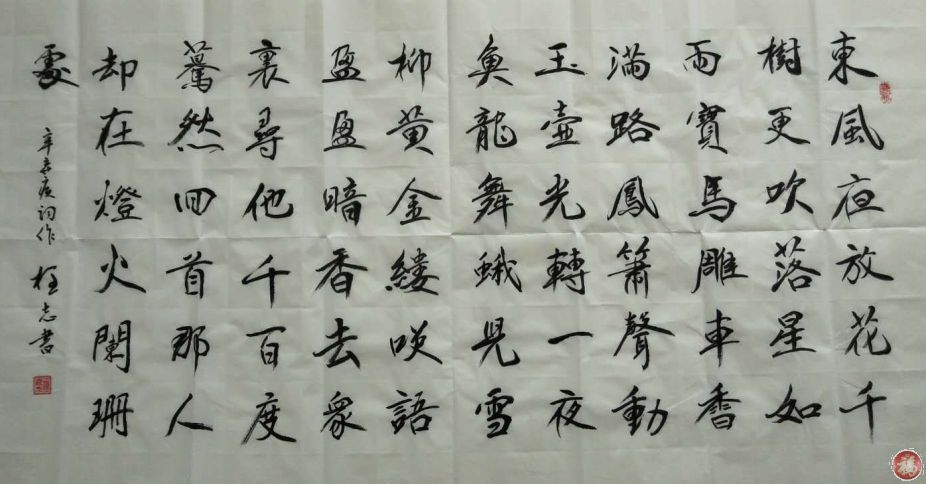 東風夜放花千
樹更吹落星如
雨寶馬雕車香
滿路鳳簫聲動
玉壺光轉一夜
魚龍舞蛾兒雪
柳黃金縷笑語
盈盈暗香去衆
裏尋他千百度
驀然回首那人
却在燈火闌珊
處
辛弃疾词作 志書
福